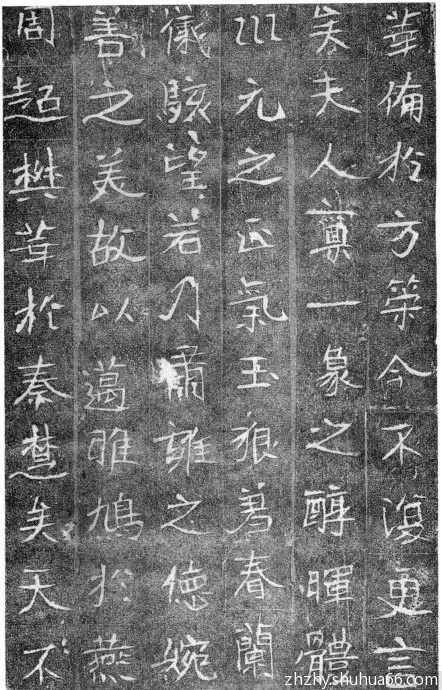 華備於方策今不復更言
矣夫人一象之醇暉體
巛元之正氣玉狼著春蘭
儀駭望若乃肅雍之德婉
善之美故以邁雎鳩於燕
周超樊華於秦楚矣天不
zhzhy.shuhua66.com